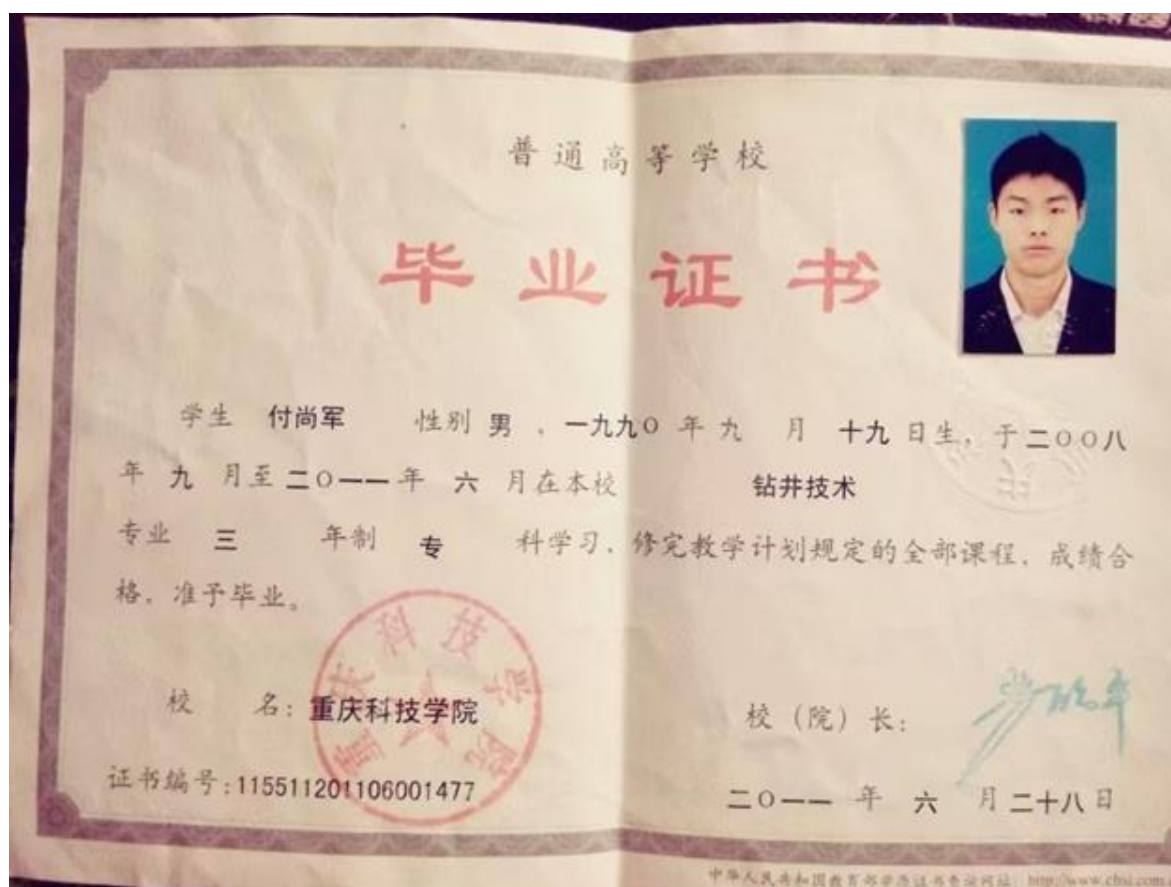 普通高等学校
毕业证书
学生 付尚军 性别 男 , 一九九〇 年 九 月 十九 日生, 于 二〇〇八
年 九 月至 二〇一一 年 六 月在本校 钻井技术
专业 三 年制 专 科学习, 修完教学计划规定的全部课程, 成绩合
格, 准予毕业。
重庆科技学院
校 名: 重庆科技学院
校(院)长:
证书编号:115511201106001477
二〇一一 年 六 月 二十八 日
中华人民共和国教育部学历证书查询网址: http://www.chsi.com